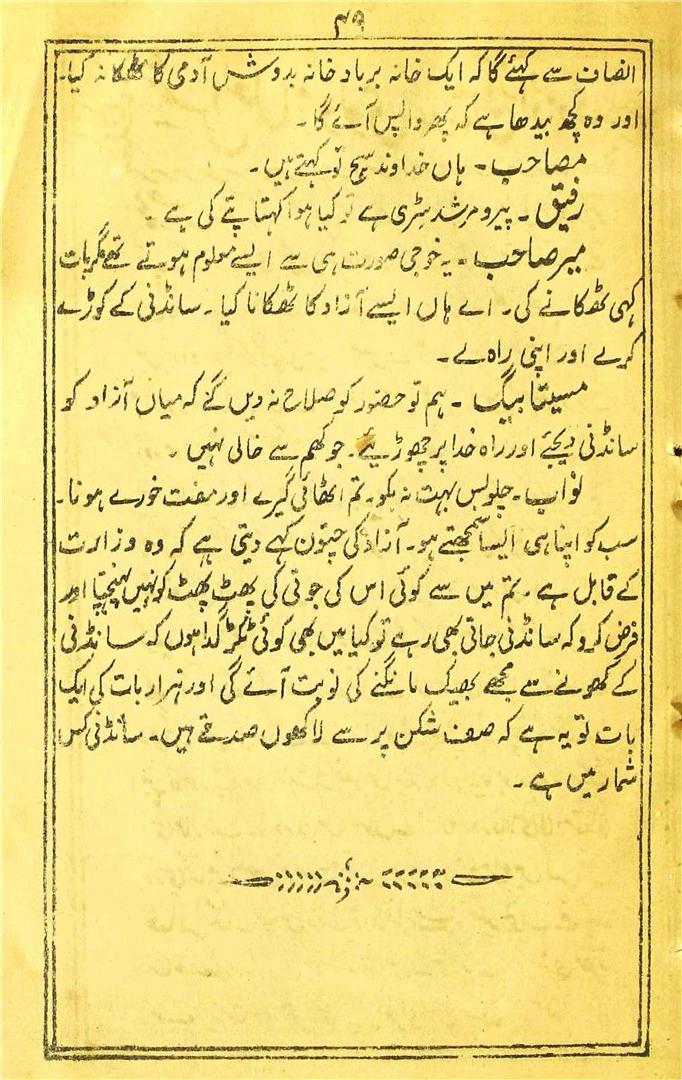 ۴۹
انصاف سے کہئے گا کہ ایک خانہ برباد خانہ بدوش آدمی کا ٹھکانہ کیا۔
اور وہ کچھ بیدھا ہے کہ پھر واپس آئے گا۔
مصاحب۔ ہاں خداوند سچ تو کہتے ہیں۔
رفیق۔ پیر و مرشد سڑی ہے تو کیا ہوا کہتا پتے کی ہے۔
میر صاحب۔ یہ خوجی صورت ہی سے ایسے معلوم ہوتے تھے مگر بات
کہی ٹھکانے کی۔ اے ہاں ایسے آزاد کا ٹھکانا کیا۔ سانڈنی کے کوڑے
کرے اور اپنی راہ لے۔
مسیتا بیگ۔ ہم تو حضور کو صلاح نہ دیں گے کہ میاں آزاد کو
سانڈنی دیجئے اور راہ خدا پر چھوڑیئے۔ جوکھم سے خالی نہیں۔
نواب۔ چلو بس بہت نہ بکو۔ تم اٹھائی گیرے اور مفت خورے ہونا۔
سب کو اپنا ہی ایسا سمجھتے ہو۔ آزاد کی چتون کہے دیتی ہے کہ وہ وزارت
کے قابل ہے۔ تم میں سے کوئی اس کی جوتی کی پھٹ پھٹ کو نہیں پہنچتا اور
فرض کرو کہ سانڈنی جاتی بھی رہے تو کیا میں بھی کوئی ٹکڑ گدا ہوں کہ سانڈنی
کے کھونے سے مجھے بھیک مانگنے کی نوبت آئے گی اور ہزار بات کی ایک
بات تو یہ ہے کہ صف شکن پر سے لاکھوں صدقے ہیں۔ سانڈنی کس
شمار میں ہے۔